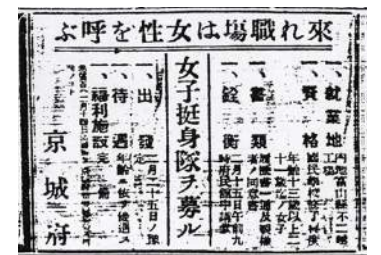 來れ職場は女性を呼ぶ
一、就業地 内地富山縣不二越
工場
一、資格 國民學校修了程度
年齡十三歲以上二
十一歲 ノ女子
一、書類 履歷書一通及親權
者ノ同意書
一、銓衡 二月十 日午前九
時府民館
女子挺身隊ヲ募ル
一、出發 二月二十五日ノ豫
定
一、待遇 年齡ニ依 優遇ス
一、福利施設 完備
京城府